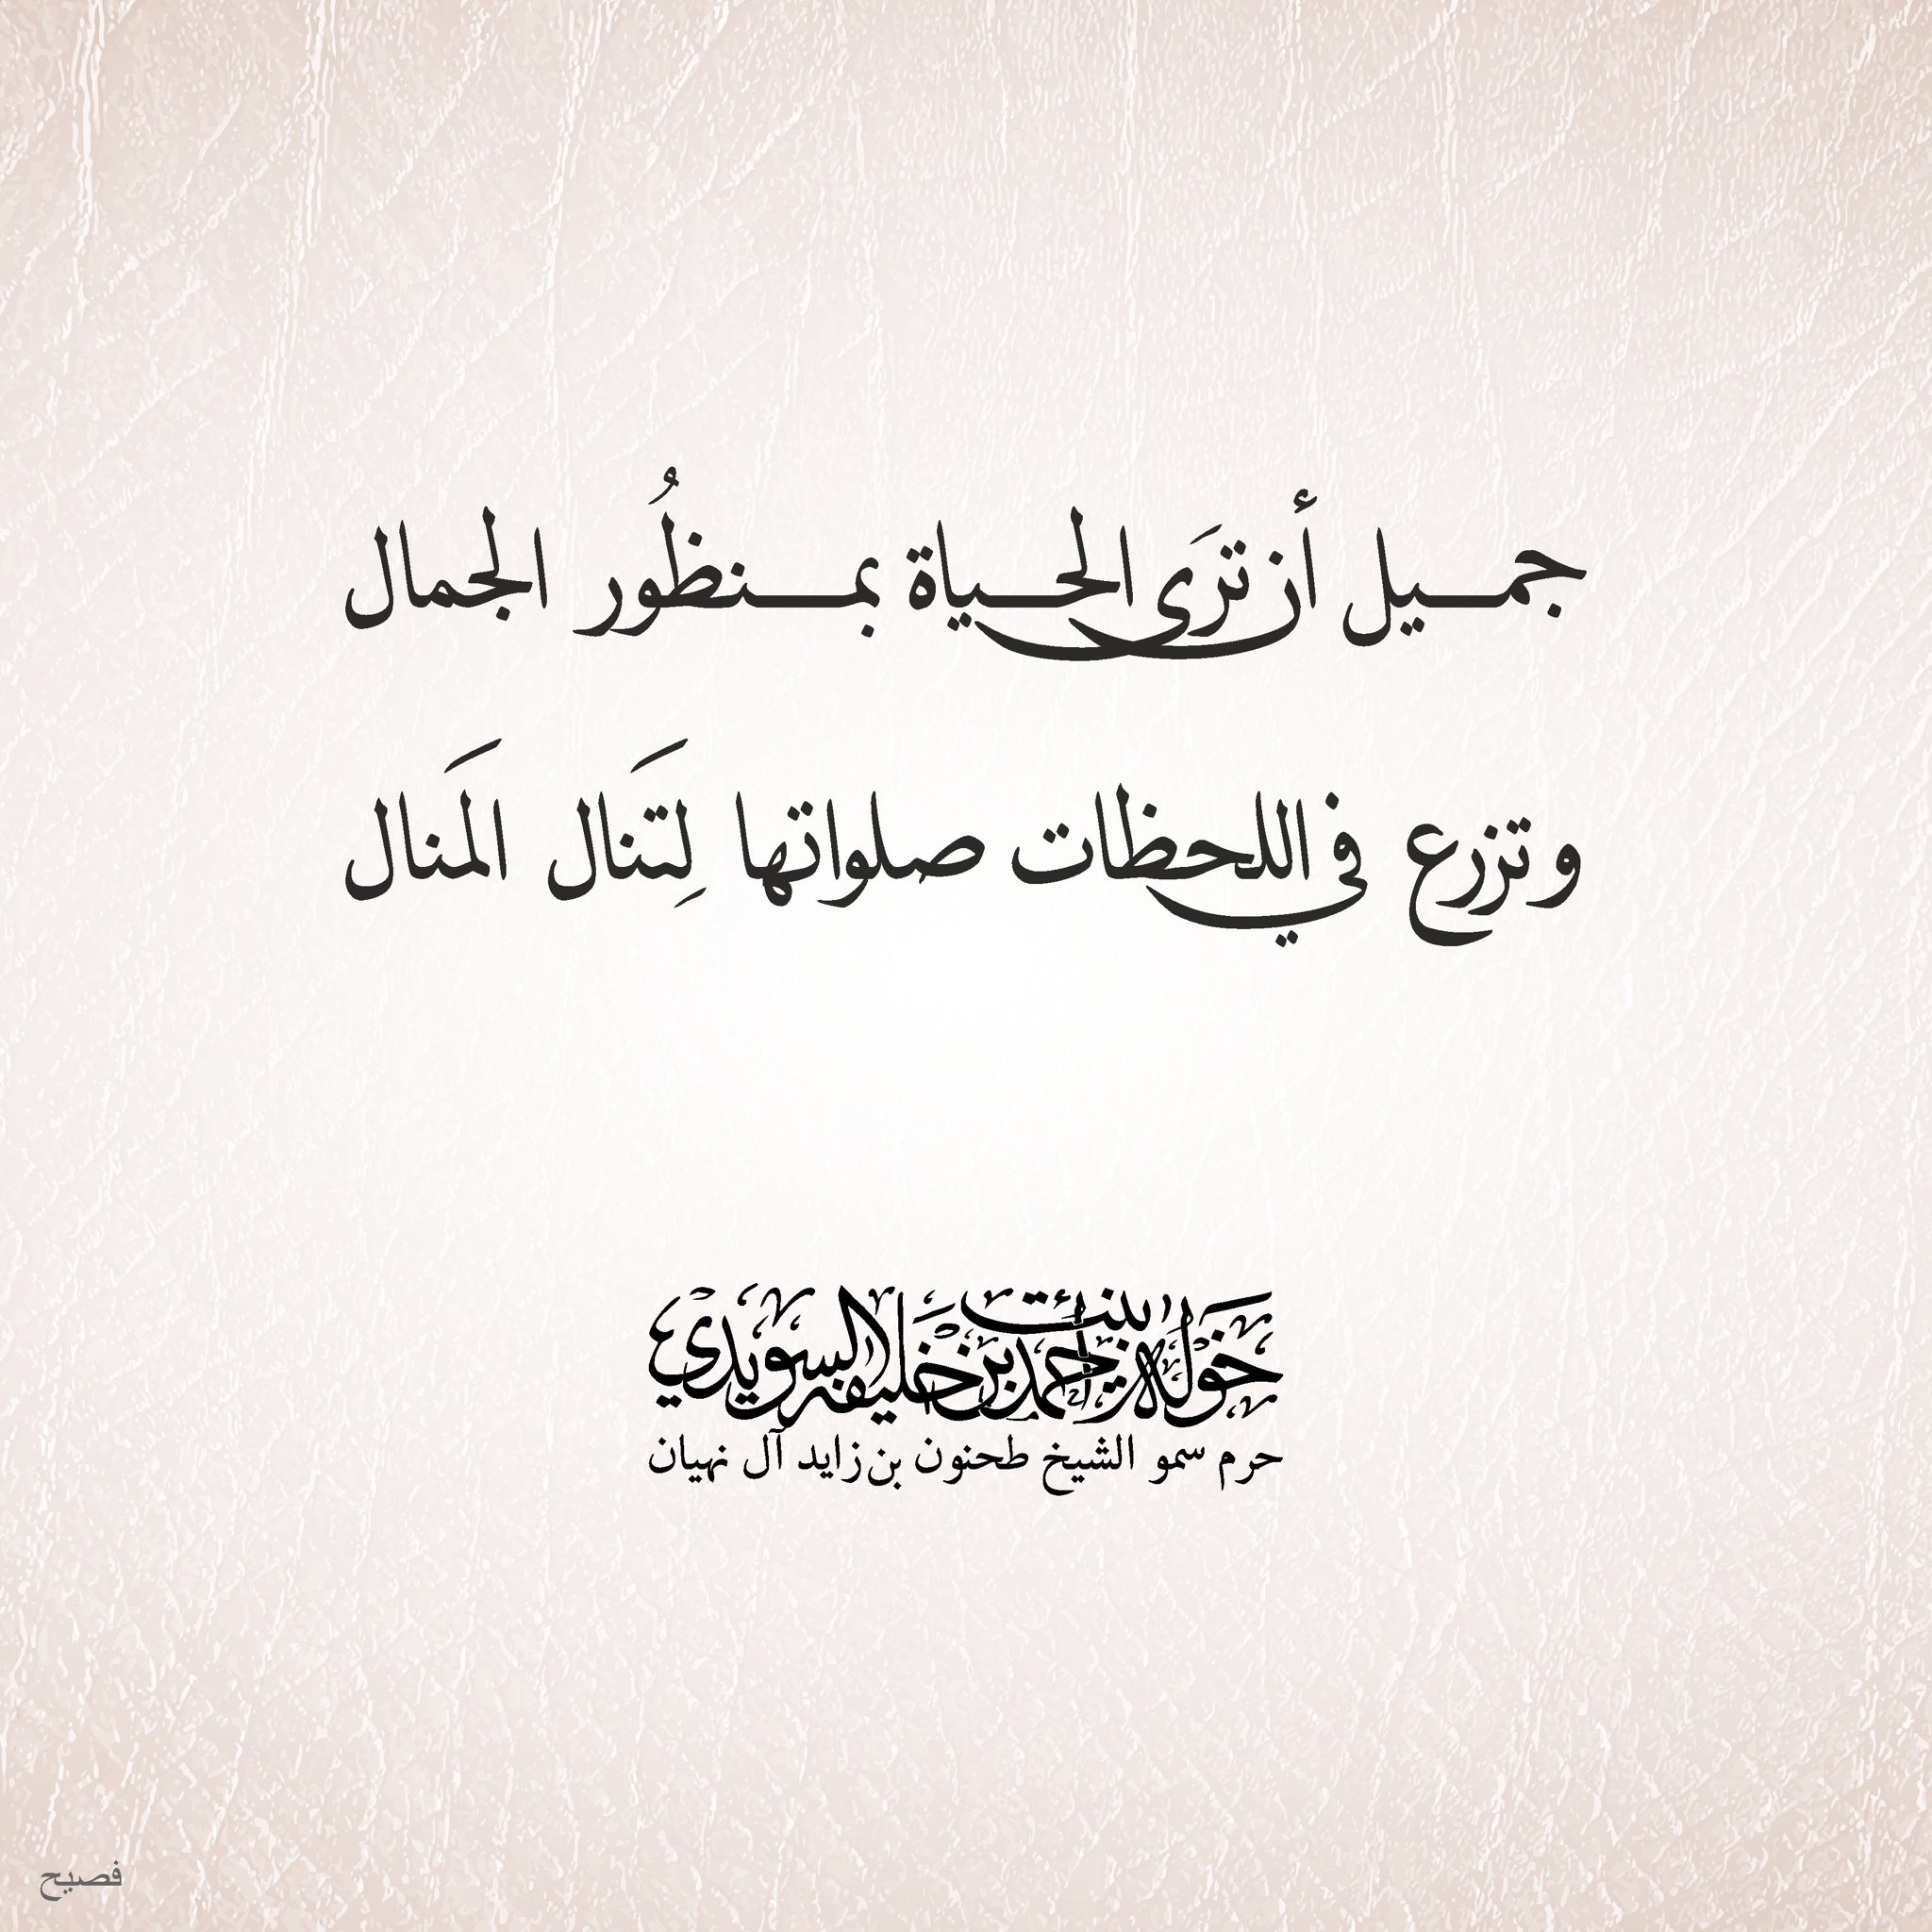 جميل أن ترَى الحياة بمنظُور الجمال
وتزرع في اللحظات صلواتها لِتَنال المَنال
خوله بنت أحمد بن خليفه السويدي
حرم سمو الشيخ طحنون بن زايد آل نهيان
فصيح